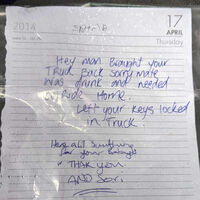 2014
17
APRIL
Thursday
Hey man Brought your
Truck Back sorry mate
was drunk and needed
Ride Home.
Left your keys locked
in Truck.
Here a lit Something
for your
THANK you
AND Sori